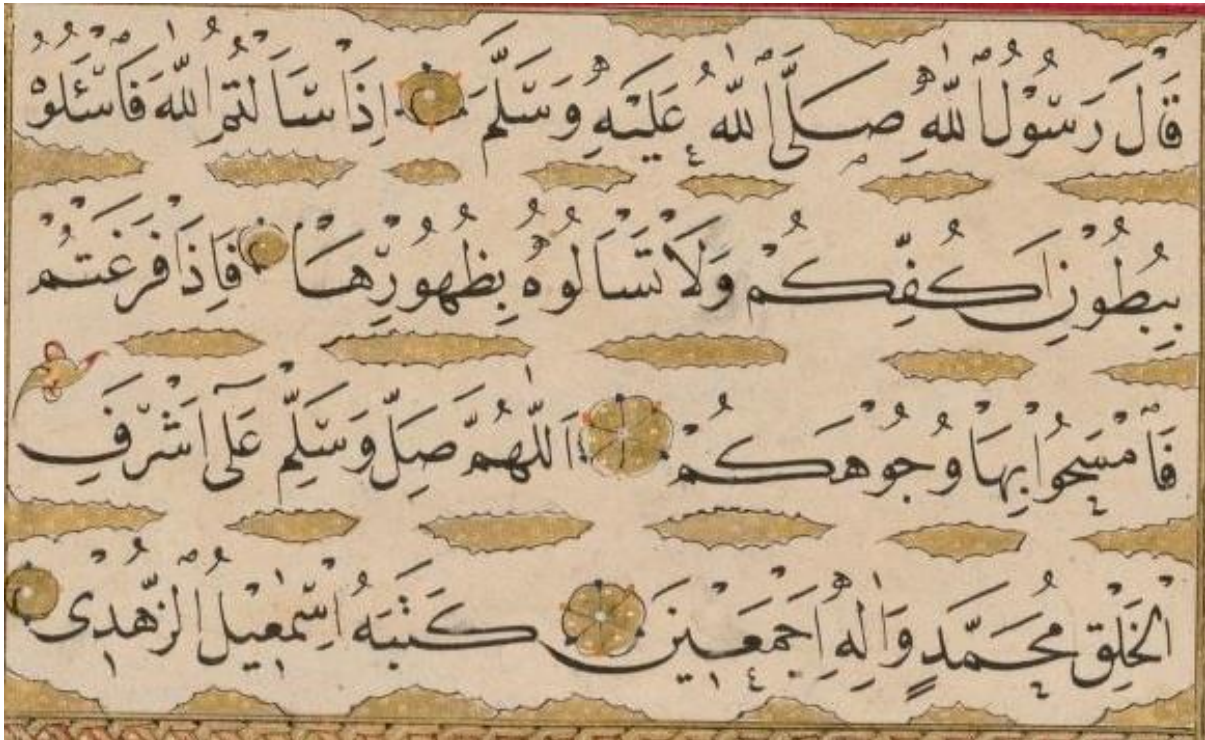 قَالَ رَسُولُ اللهِ صَلَّى اللهُ عَلَيْهِ وَسَلَّمَ اِذَا سَاَلْتُمُ اللهَ فَاسْئَلُوْهُ
بِبُطُوْنِ اَكُفِّكُمْ وَلَا تَسْاَلُوهُ بِظُهُورِهَا فَاِذَا فَرَغْتُمْ
فَامْسَحُوا بِهَا وُجُوْهَكُمْ اَللّٰهُمَّ صَلِّ وَسَلِّمْ عَلٰٓى اَشْرَفِ
الْخَلْقِ مُحَمَّدٍ وَاٰلِهِ اَجْمَعِيْنَ كَتَبَهُ اِسْمٰعِيْلُ الزُّهْدِى